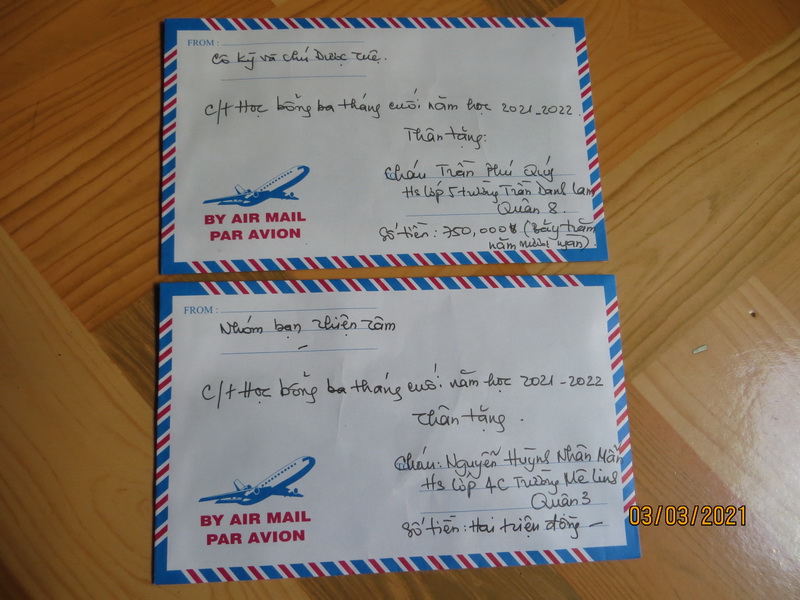 FROM :
Cô Kỷ và chú Dược Tuệ.
C/t Học bổng ba tháng cuối năm học 2021-2022
Thân tặng:
Cháu Trần Phú Quý
Hs lớp 5 trường Trần Danh Lam
Quận 8.
BY AIR MAIL
PAR AVION
Số tiền: 750,000đ (bảy trăm
năm mươi ngàn).
FROM :
Nhóm bạn Thiện Tâm
C/t Học bổng ba tháng cuối năm học 2021-2022
Thân tặng.
Cháu: Nguyễn Huỳnh Nhân Mẫn
Hs Lớp 4C Trường Mê Linh
Quận 3
BY AIR MAIL
PAR AVION
Số tiền: Hai triệu đồng –
03/03/2021